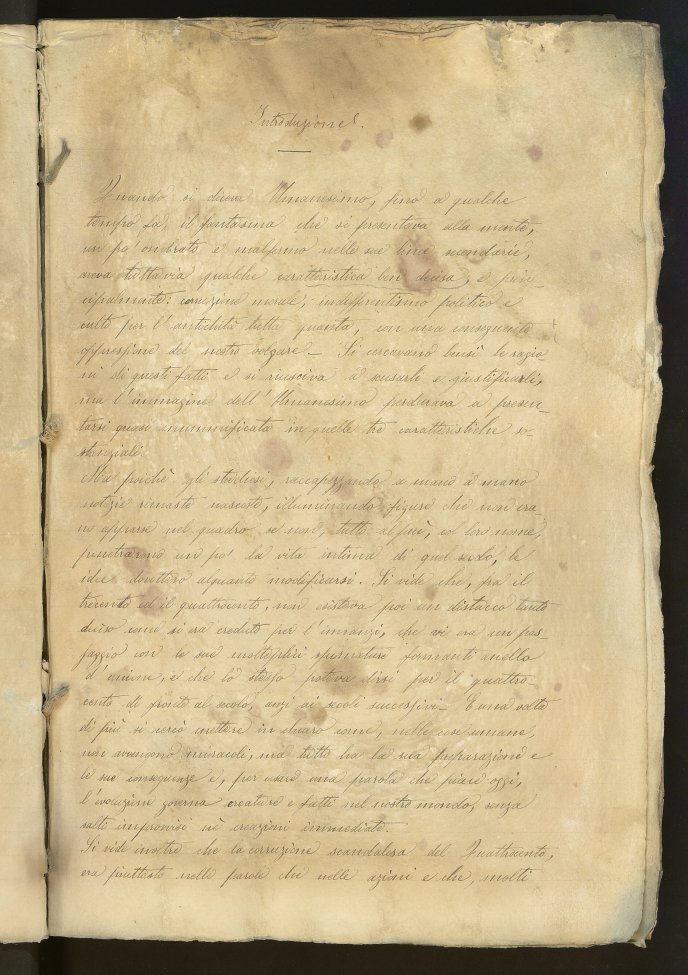 Introduzione.
Quando si diceva Umanesimo, fino a qualche
tempo fa, il fantasma che si presentava alla mente,
un po' ombrato e malfermo nelle sue linee secondarie,
aveva tuttavia qualche caratteristica ben decisa, e prin-
cipalmente: corruzione morale, indifferentismo politico e
culto per l'antichità tutta quanta, con una conseguente
oppressione del nostro volgare. Si cercavano bensì le ragio
ni di questi fatti e si riusciva a scusarli e giustificarli,
ma l'immagine dell'Umanesimo perdurava a presen-
tarsi quasi mummificata in quelle tre caratteristiche so-
stanziali.
Ma poichè gli studiosi, raccapezzando a mano a mano
notizie rimaste nascoste, illuminando figure che non era
no apparse nel quadro se non, tutt'al più, col loro nome,
penetrarono un po' la vita intima di quel secolo, le
idee dovettero alquanto modificarsi. Si vide che, fra il
trecento ed il quattrocento, non esisteva poi un distacco tanto
deciso come si era creduto per l'innanzi, che vi era un pas-
saggio con le sue molteplici sfumature formanti anello
d'unione, e che lo stesso poteva dirsi per il quattro-
cento di fronte al secolo, anzi ai secoli successivi. E una volta
di più si cercò mettere in chiaro come, nelle cose umane,
non avvengono miracoli, ma tutto ha la sua preparazione e
le sue conseguenze e, per usare una parola che piace oggi,
l'evoluzione governa creature e fatti nel nostro mondo, senza
salti improvvisi nè creazioni immediate.
Si vide inoltre che la corruzione scandalosa del Quattrocento,
era piuttosto nelle parole che nelle azioni e che, molti